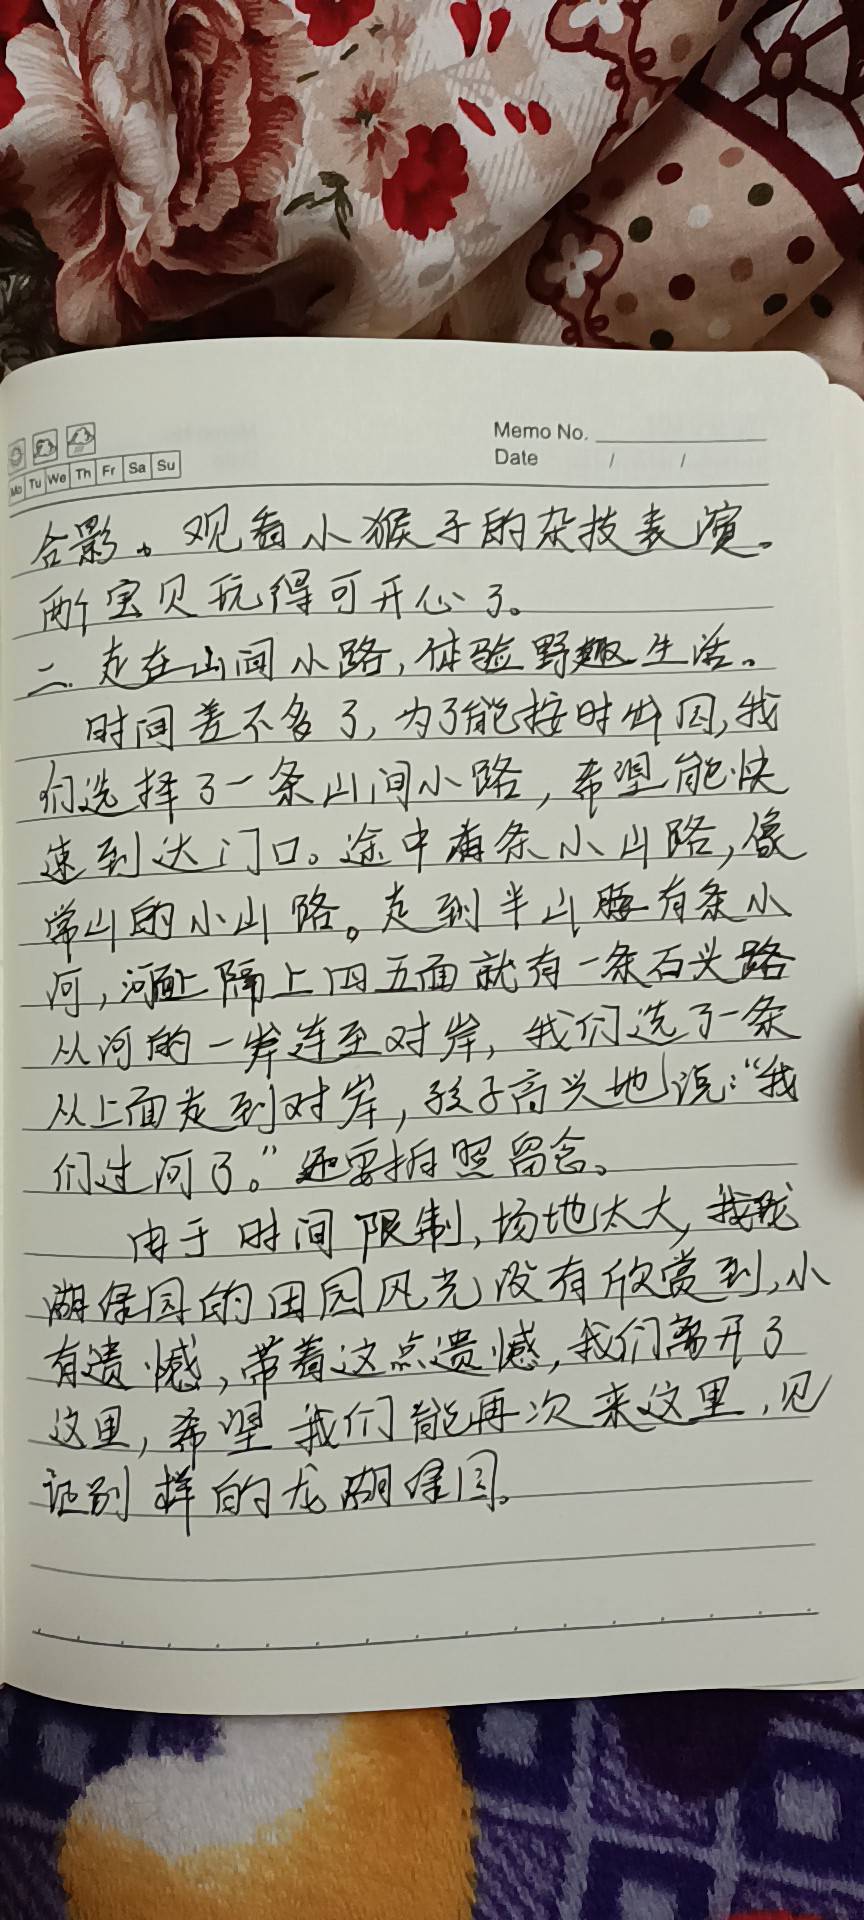 Memo No.
Date / /
Mo Tu We Th Fr Sa Su
合影。观看小猴子的杂技表演。
两个宝贝玩得可开心了。
二、走在山间小路,体验野趣生活。
时间差不多了,为了能按时出园,我
们选择了一条山间小路,希望能快
速到达门口。途中有条小山路,像
常山的小山路。走到半山腰有条小
河,河面上隔上四五面就有一条石头路
从河的一岸连至对岸,我们选了一条
从上面走到对岸,孩子高兴地说:“我
们过河了。”还要拍照留念。
由于时间限制,场地太大,我
湖绿园的田园风光没有欣赏到,小
有遗憾,带着这点遗憾,我们离开了
这里,希望我们能再次来这里,见
识别样的龙湖绿园。